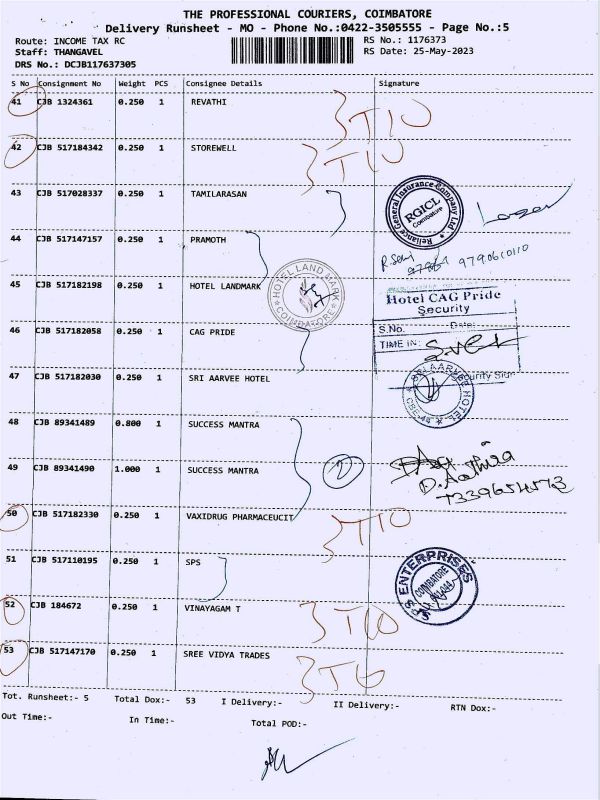 THE PROFESSIONAL COURIERS, COIMBATORE
Delivery Runsheet - MO - Phone No.:0422-3505555 - Page No.:5
Route: INCOME TAX RC
RS No.: 1176373
Staff: THANGAVEL
RS Date: 25-May-2023
DRS No.: DCJB117637305
S No Consignment No Weight PCS Consignee Details Signature
41 CJB 1324361 0.250 1 REVATHI
42 CJB 517184342 0.250 1 STOREWELL
43 CJB 517028337 0.250 1 TAMILARASAN
Reliance General Insurance Company Ltd
RGICL
Coimbatore
44 CJB 517147157 0.250 1 PRAMOTH
9790610110
45 CJB 517182198 0.250 1 HOTEL LANDMARK
HOTEL LAND MARK
COIMBATORE
Hotel CAG Pride
Security
S.No. Date:
TIME IN:
46 CJB 517182058 0.250 1 CAG PRIDE
47 CJB 517182030 0.250 1 SRI AARVEE HOTEL
48 CJB 89341489 0.800 1 SUCCESS MANTRA
49 CJB 89341490 1.000 1 SUCCESS MANTRA
2
50 CJB 517182330 0.250 1 VAXIDRUG PHARMACEUCIT
51 CJB 517110195 0.250 1 SPS
SPS ENTERPRISES
COIMBATORE
52 CJB 184672 0.250 1 VINAYAGAM T
53 CJB 517147170 0.250 1 SREE VIDYA TRADES
Tot. Runsheet:- 5 Total Dox:- 53 I Delivery:- II Delivery:- RTN Dox:-
Out Time:- In Time:- Total POD:-